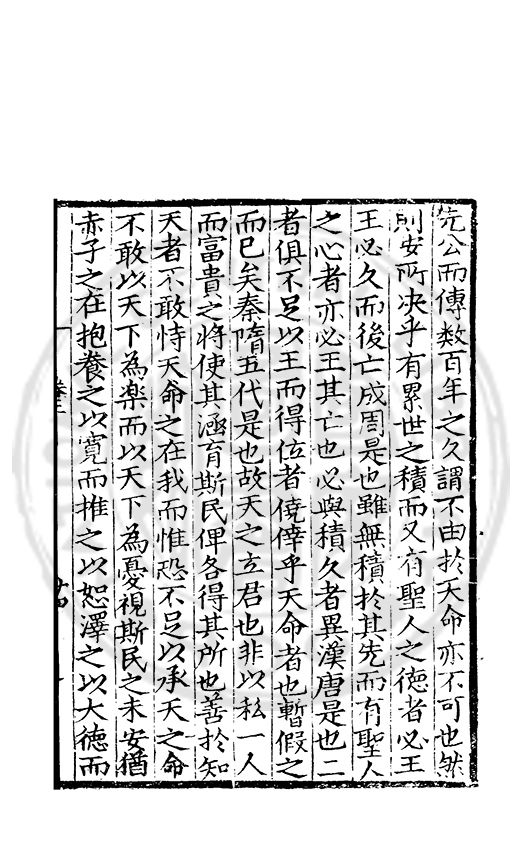 先公而傳数百年之久謂不由於天命亦不可也然
則安所决乎有累世之積而又有聖人之徳者必王
王必久而後亡成周是也雖無積於其先而有聖人
之心者亦必王其亡也必與積久者異漢唐是也二
者俱不足以王而得位者僥倖乎天命者也暫假之
而已矣秦隋五代是也故天之立君也非以私一人
而富貴之将使其涵育斯民俾各得其所也善於知
天者不敢恃天命之在我而惟恐不足以承天之命
不敢以天下為楽而以天下為憂視斯民之未安猶
赤子之在抱養之以寛而推之以恕澤之以大徳而